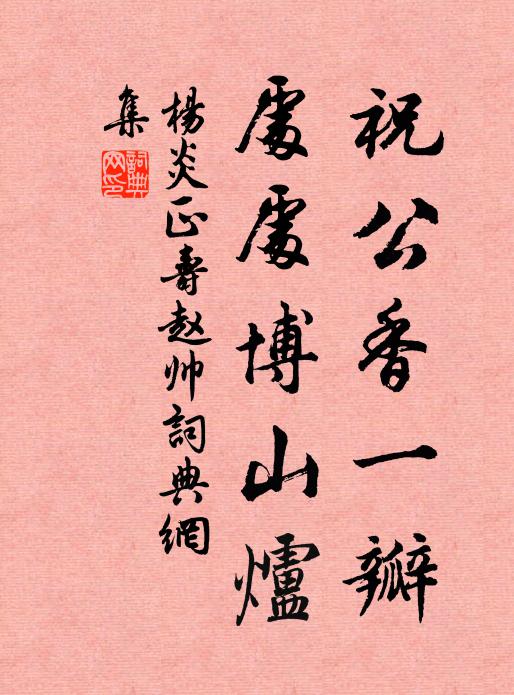 祝公香一瓣
處處博山爐
楊炎正壽赵帅詞典網
集
詞典网印